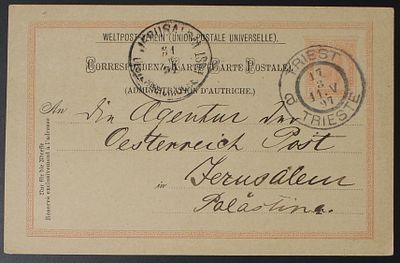 WELTPOSTVEREIN (UNION POSTALE UNIVERSELLE).
JERUSALEM
CORRESPONDENZ-KARTE (CARTE POSTALE)
(ADMINISTRATION D'AUTRICHE).
TRIEST
17
3
11.V
97
TRIESTE
An die Agentur der
Oesterreich Post
in Jerusalem
Palästina.
Nur für die Adresse
Réservé exclusivement à l'adresse